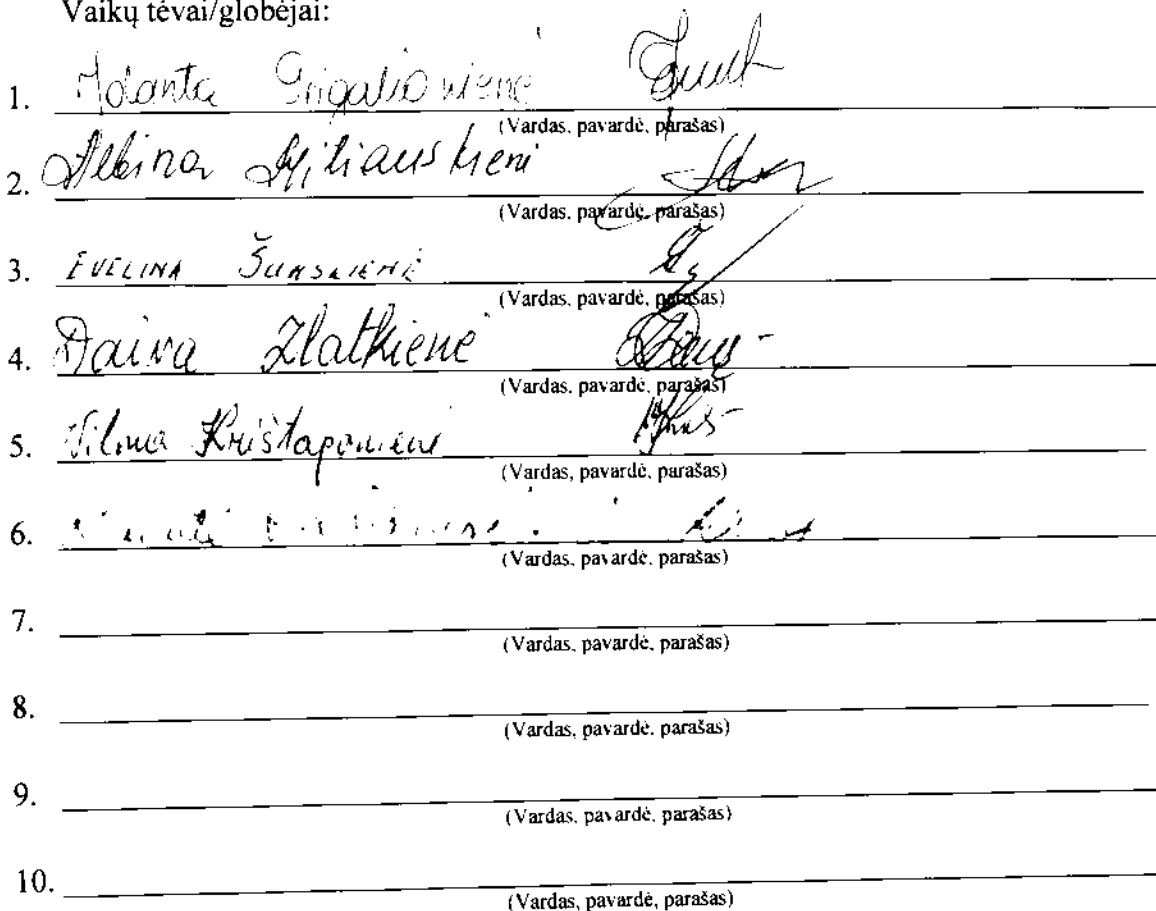 Vaikų tėvai/globėjai:
1. Jolanta Grigalionienė
(Vardas, pavardė, parašas)
2. Albina
(Vardas, pavardė, parašas)
3. EVELINA ŠUMSKIENĖ
(Vardas, pavardė, parašas)
4. Daiva Zlatkienė
(Vardas, pavardė, parašas)
5. Vilma Krištaponienė
(Vardas, pavardė, parašas)
6.
(Vardas, pavardė, parašas)
7.
(Vardas, pavardė, parašas)
8.
(Vardas, pavardė, parašas)
9.
(Vardas, pavardė, parašas)
10.
(Vardas, pavardė, parašas)